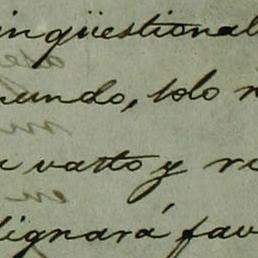 inqüestional
mundo, solo n
a vasto y re
dignará fav